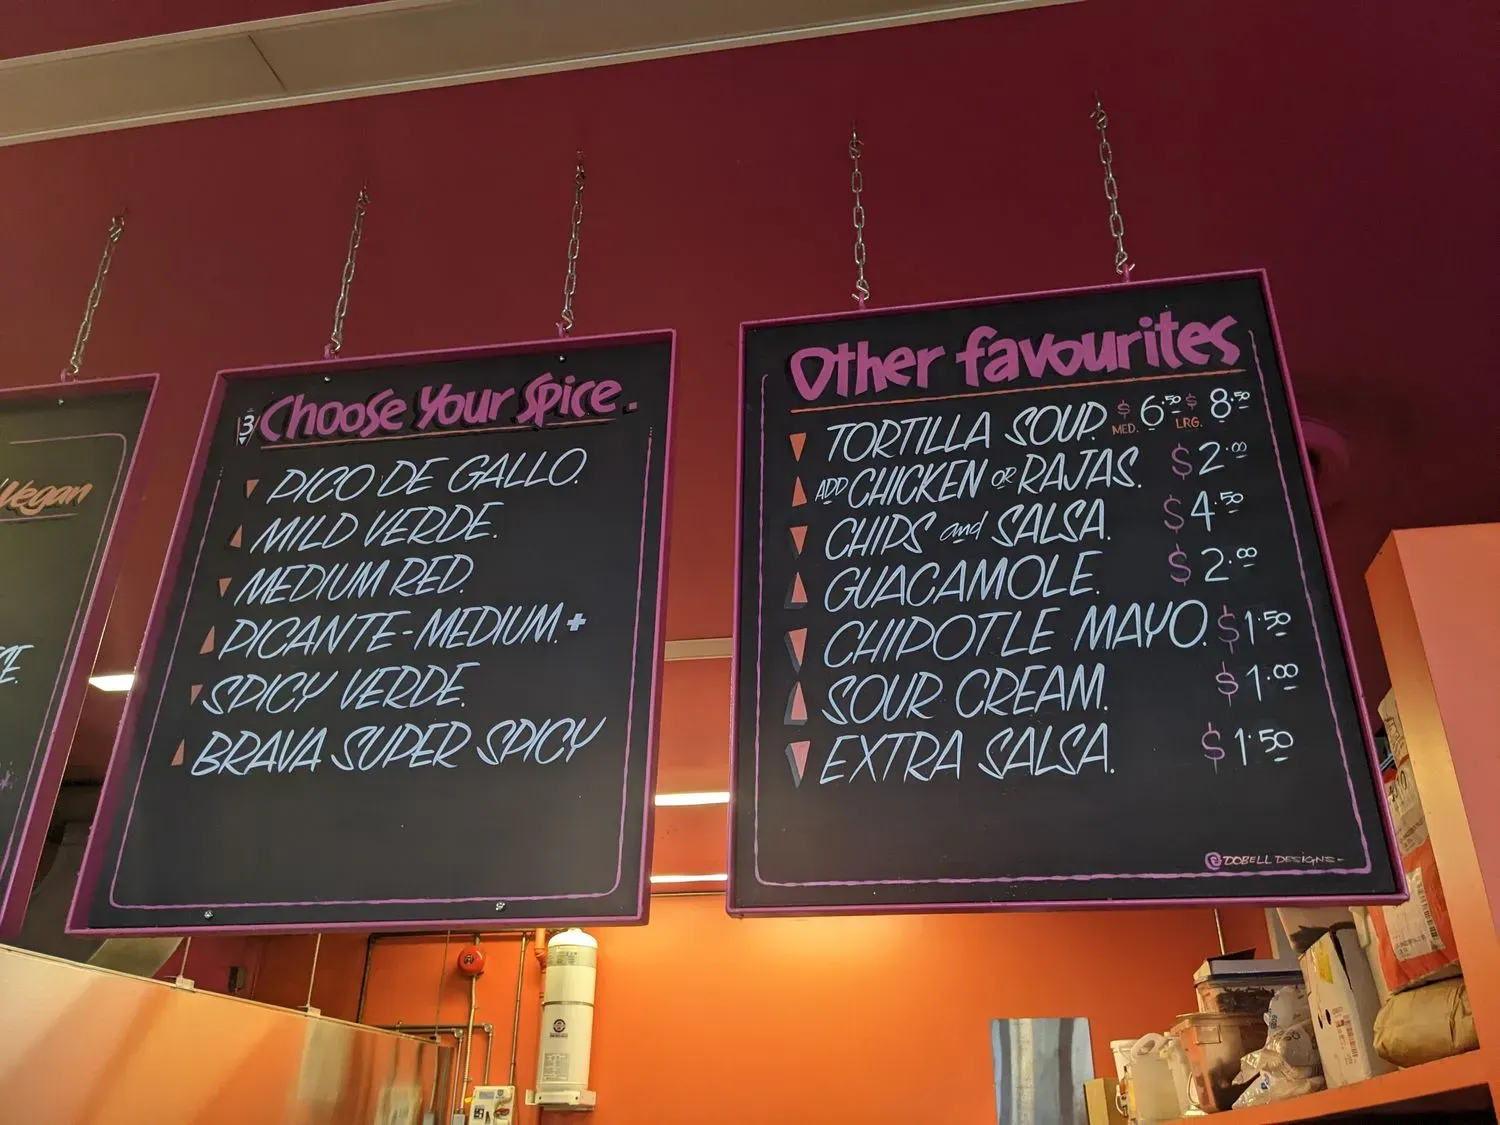 Vegan
3 Choose Your Spice.
PICO DE GALLO.
MILD VERDE.
MEDIUM RED.
PICANTE-MEDIUM.+
SPICY VERDE.
BRAVA SUPER SPICY
Other favourites
TORTILLA SOUP. MED. $6.50 LRG. $8.50
ADD CHICKEN OR RAJAS. $2.00
CHIPS and SALSA. $4.50
GUACAMOLE. $2.00
CHIPOTLE MAYO. $1.50
SOUR CREAM. $1.00
EXTRA SALSA. $1.50
@DOBELL DESIGNS